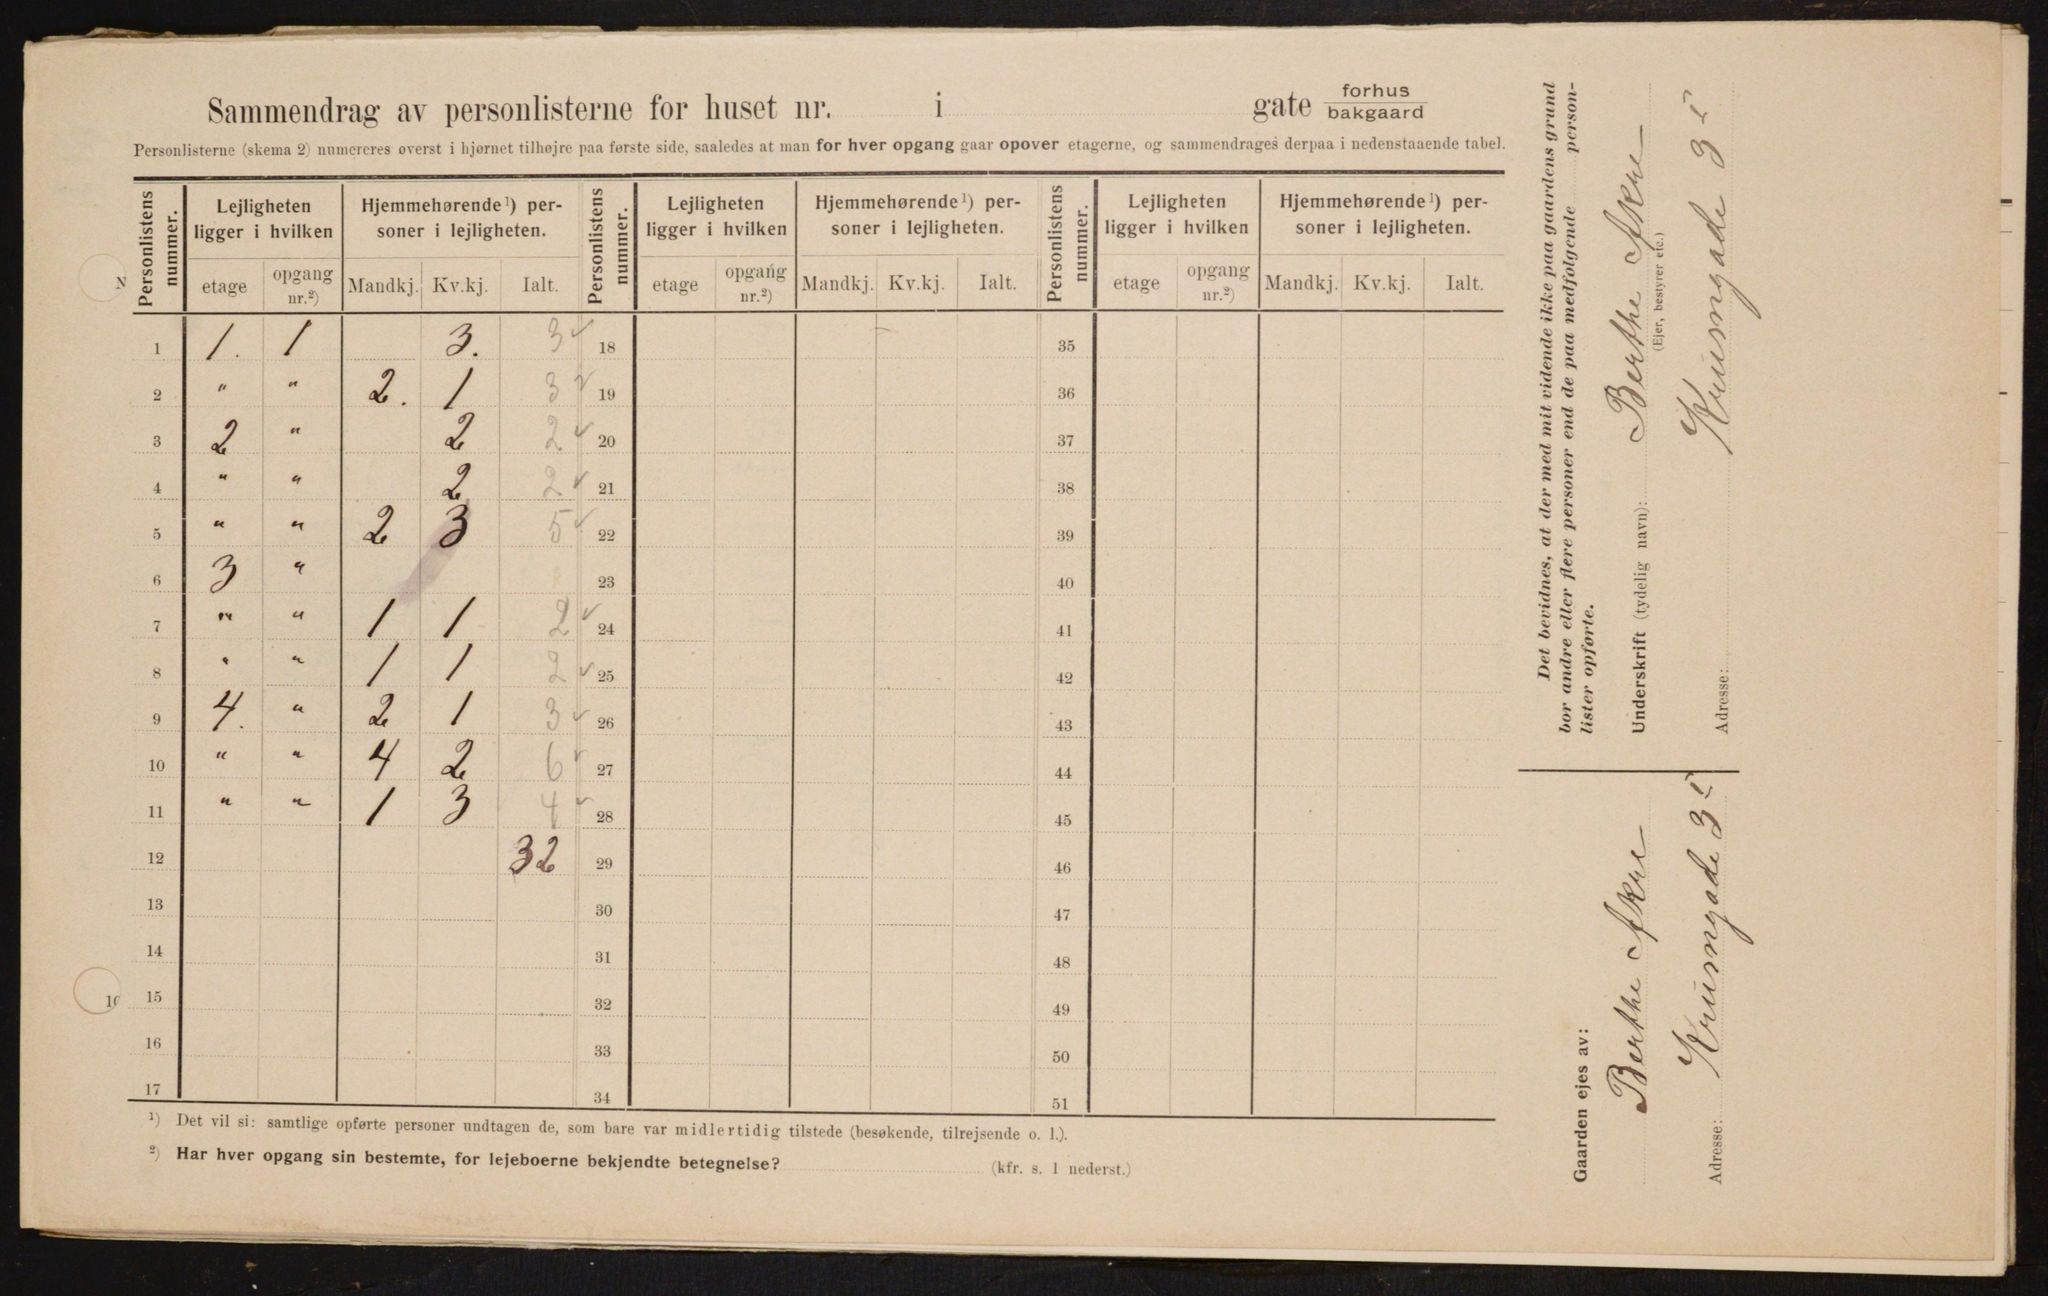 Sammendrag av personlisterne for huset nr. i gate forhus/bakgaard
Personlisterne (skema 2) numereres øverst i hjørnet tilhøjre paa første side, saaledes at man for hver opgang gaar opover etagerne, og sammendrages derpaa i nedenstaaende tabel.
Personlistens nummer. Lejligheten ligger i hvilken Hjemmehørende ¹) personer i lejligheten. Personlistens nummer. Lejligheten ligger i hvilken Hjemmehørende ¹) personer i lejligheten. Personlistens nummer. Lejligheten ligger i hvilken Hjemmehørende ¹) personer i lejligheten.
etage opgang nr.²) Mandkj. Kv.kj. Ialt. etage opgang nr.²) Mandkj. Kv.kj. Ialt. etage opgang nr.²) Mandkj. Kv.kj. Ialt.
1 1. 1 3. 3 ✓ 18 35
2 " " 2. 1 3 ✓ 19 36
3 2 " 2 2 ✓ 20 37
4 " " 2 2 ✓ 21 38
5 " " 2 3 5 ✓ 22 39
6 3 " 23 40
7 " " 1 1 2 ✓ 24 41
8 " " 1 1 2 ✓ 25 42
9 4. " 2 1 3 ✓ 26 43
10 " " 4 2 6 ✓ 27 44
11 " " 1 3 4 ✓ 28 45
12 32 29 46
13 30 47
14 31 48
15 32 49
16 33 50
17 34 51
¹) Det vil si: samtlige opførte personer undtagen de, som bare var midlertidig tilstede (besøkende, tilrejsende o. l.).
²) Har hver opgang sin bestemte, for lejeboerne bekjendte betegnelse? (kfr. s. 1 nederst.)
N
10
Det bevidnes, at der med mit vidende ikke paa gaardens grund
bor andre eller flere personer end de paa medfølgende person-
lister opførte.
Underskrift (tydelig navn): Berthe Akre
(Ejer, bestyrer etc.)
Adresse: Krumgade 35
Gaarden ejes av:
Berthe Akre
Adresse: Krumgade 35